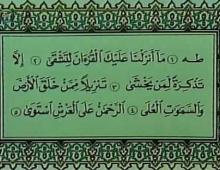 طه ١ مَآ أَنزَلْنَا عَلَيْكَ ٱلْقُرْءَانَ لِتَشْقَىٰٓ ٢ إِلَّا
تَذْكِرَةً لِّمَن يَخْشَىٰ ٣ تَنزِيلًا مِّمَّنْ خَلَقَ ٱلْأَرْضَ
وَٱلسَّمَٰوَٰتِ ٱلْعُلَى ٤ ٱلرَّحْمَٰنُ عَلَى ٱلْعَرْشِ ٱسْتَوَىٰ ٥